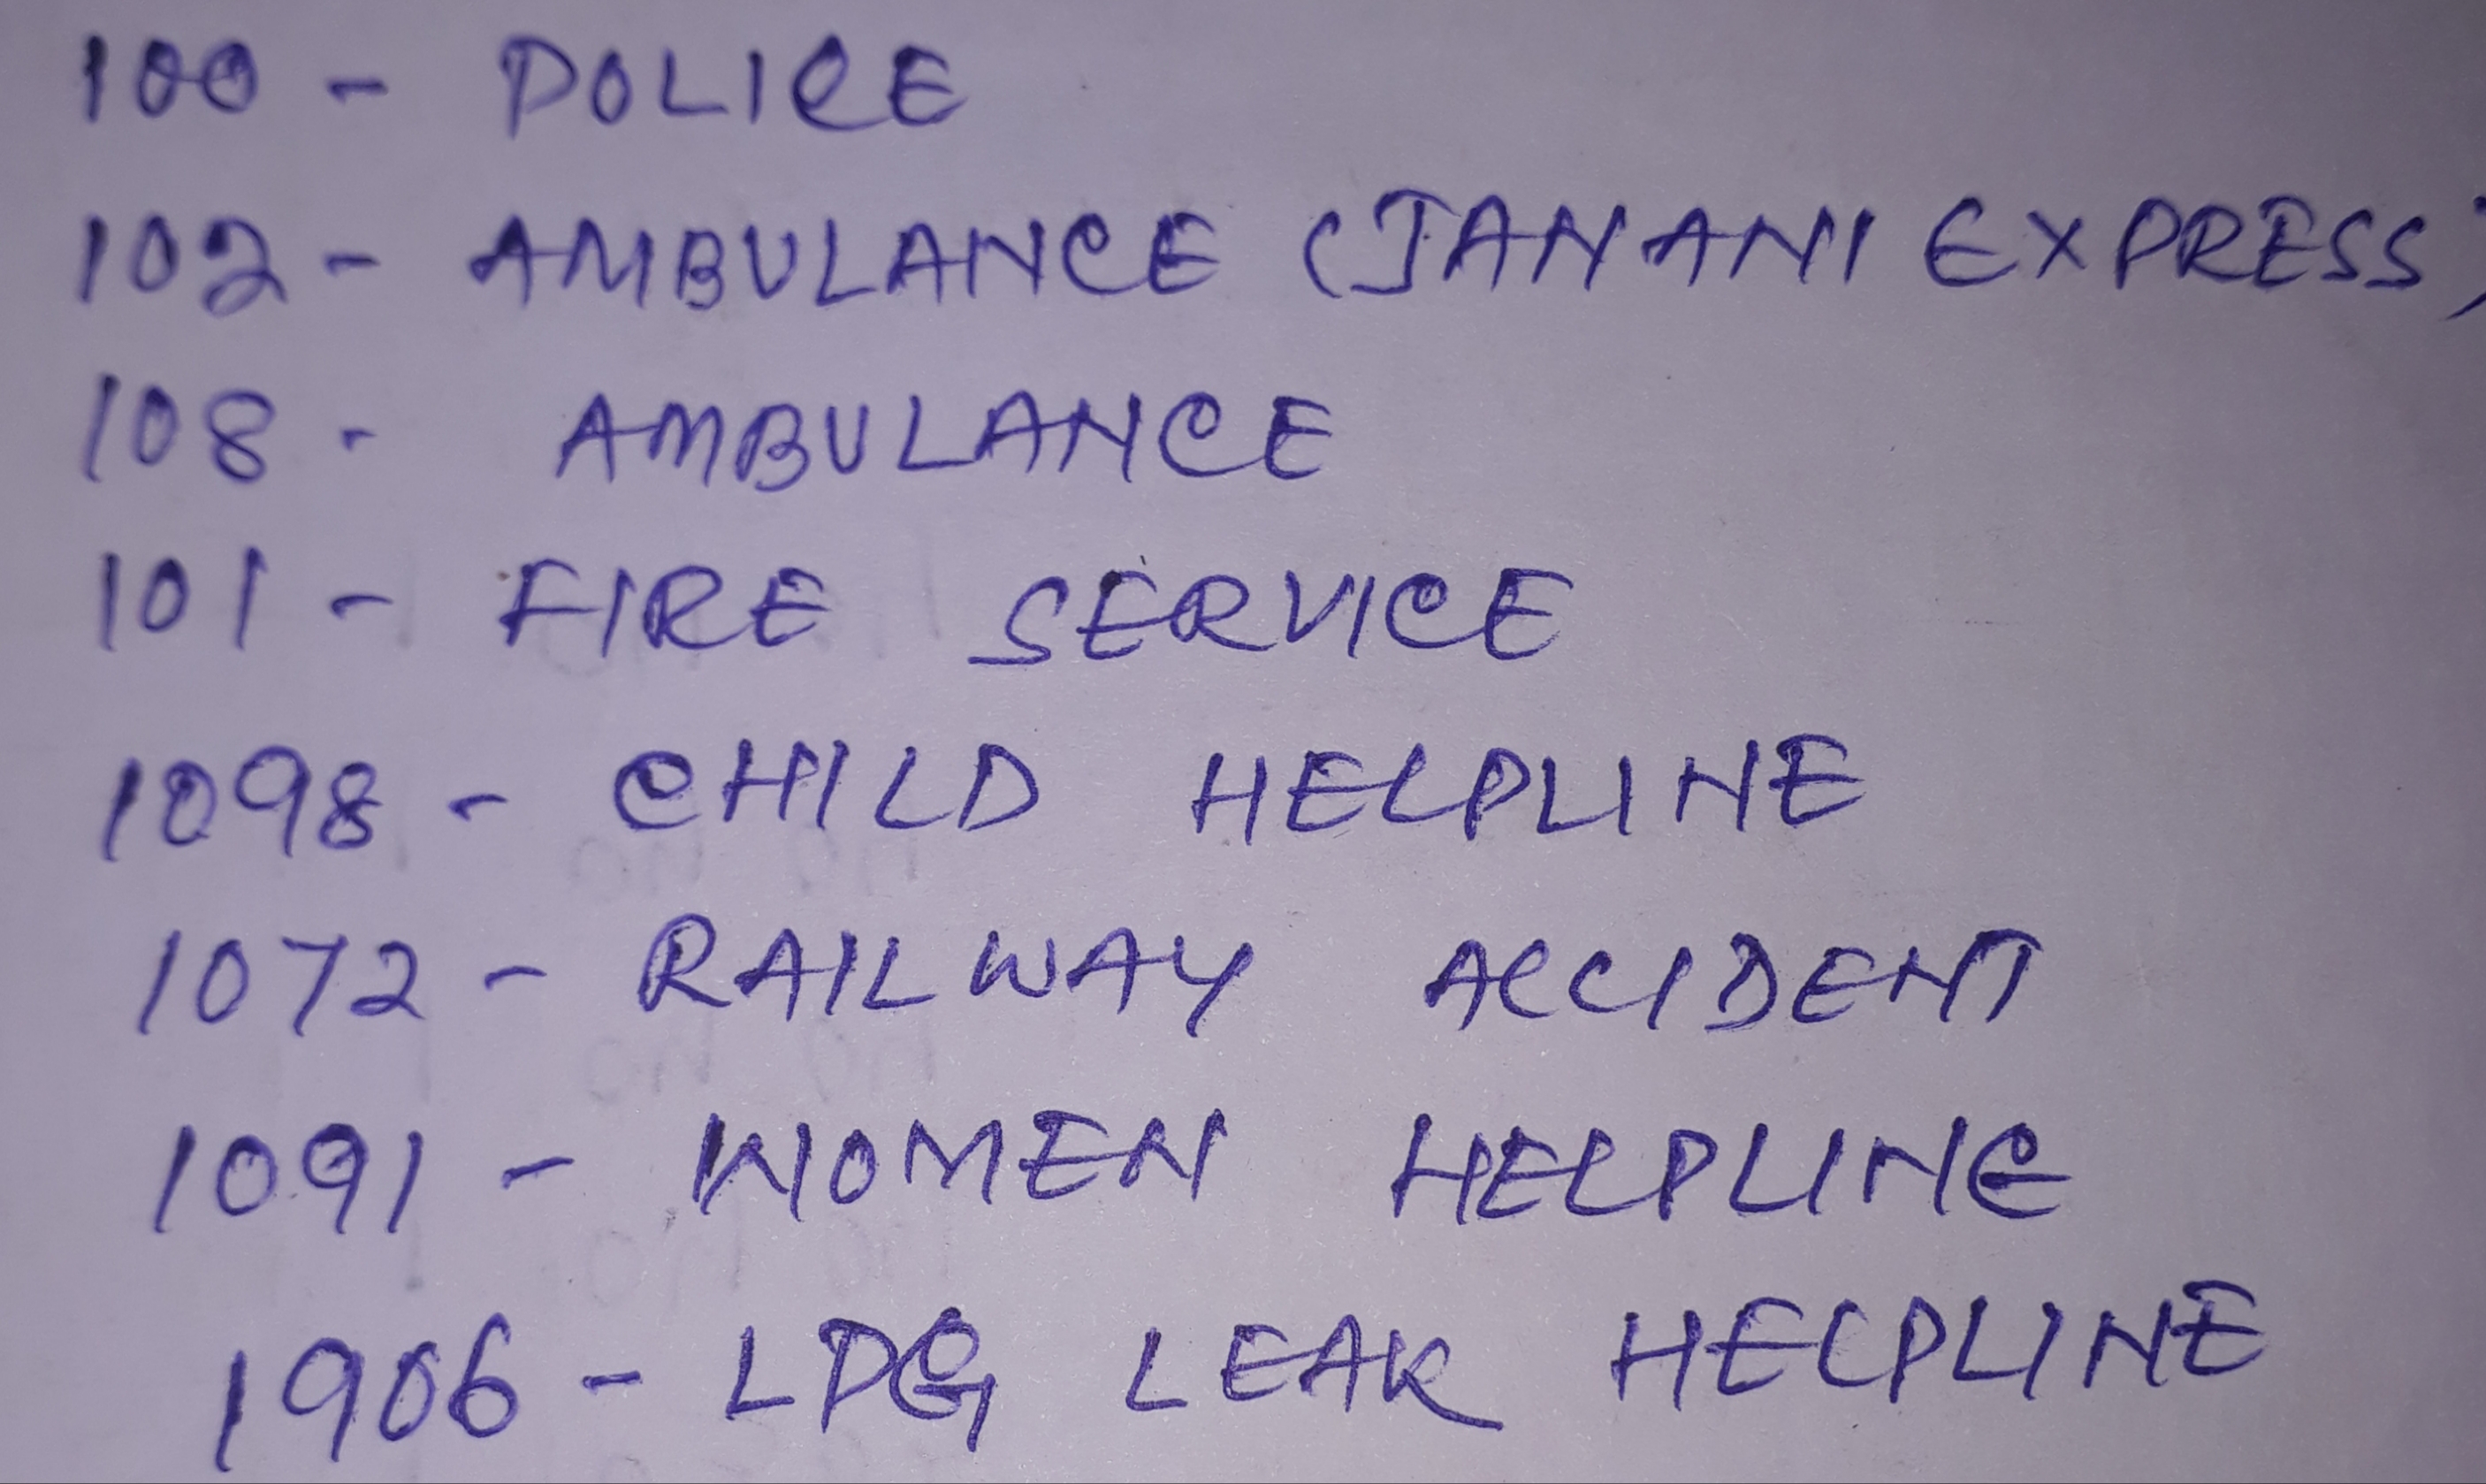 100 - POLICE
102 - AMBULANCE (JANANI EXPRESS)
108 - AMBULANCE
101 - FIRE SERVICE
1098 - CHILD HELPLINE
1072 - RAILWAY ACCIDENT
1091 - WOMEN HELPLINE
1906 - LPG LEAK HELPLINE